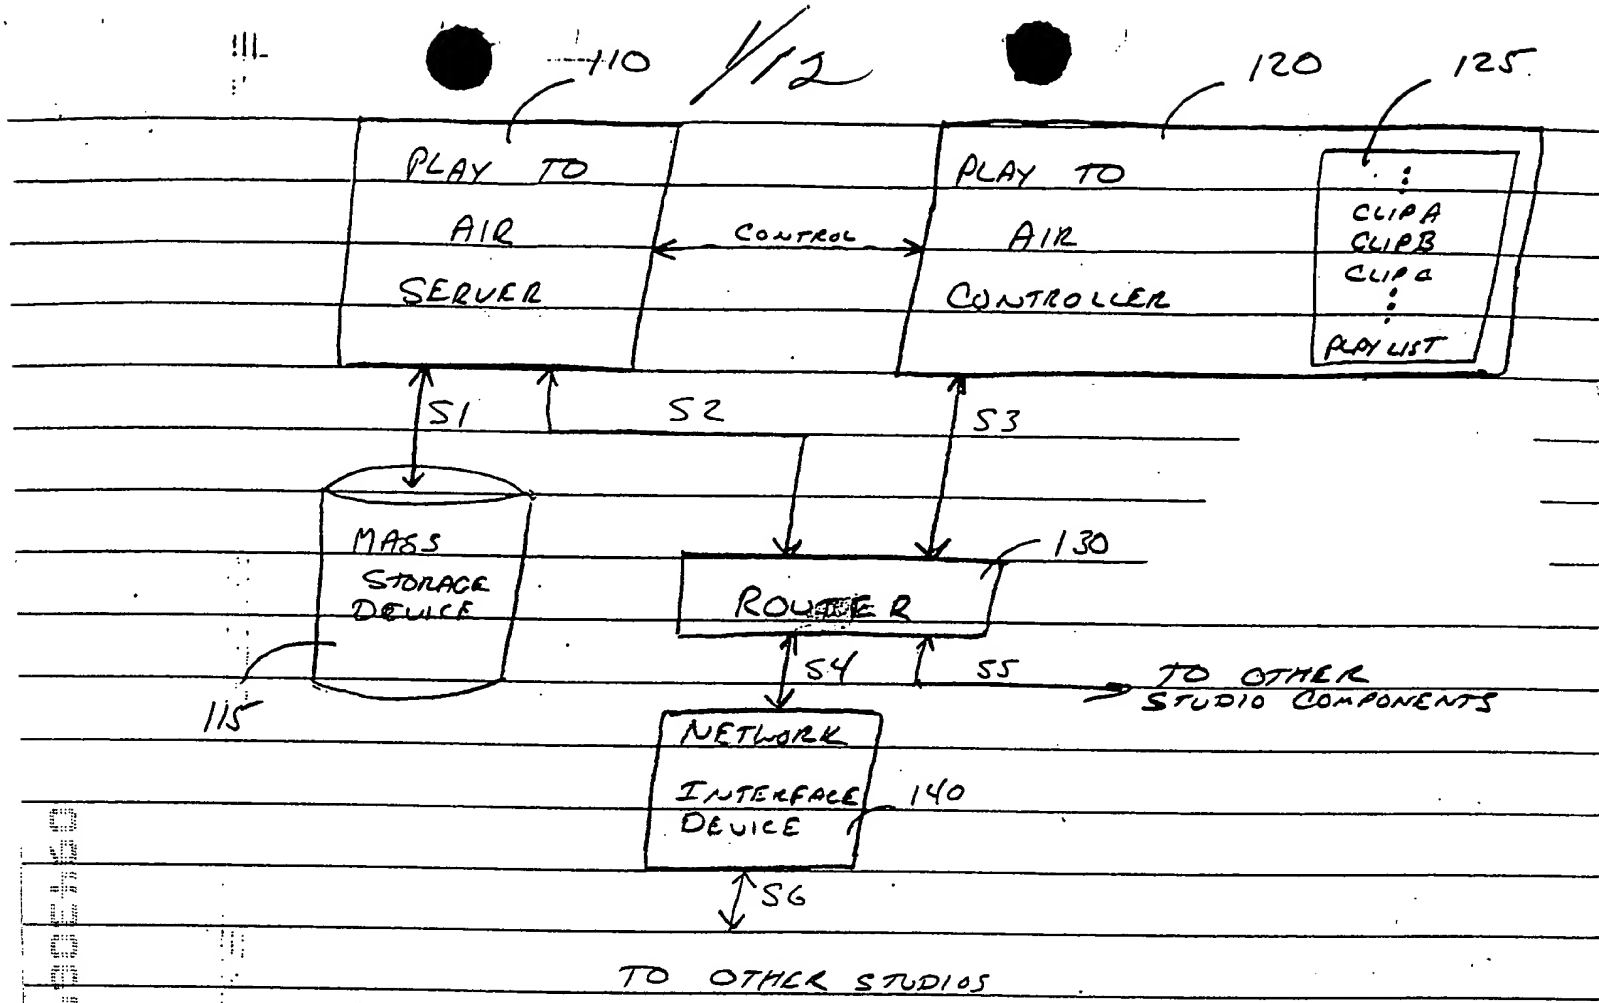 110
1/12
120
125
PLAY TO
AIR
SERVER
CONTROL
PLAY TO
AIR
CONTROLLER
CLIP A
CLIP B
CLIP C
PLAYLIST
S1
S2
S3
MASS
STORAGE
DEVICE
115
130
ROUTER
S4
S5
TO OTHER
STUDIO COMPONENTS
NETWORK
INTERFACE
DEVICE
140
S6
TO OTHER STUDIOS